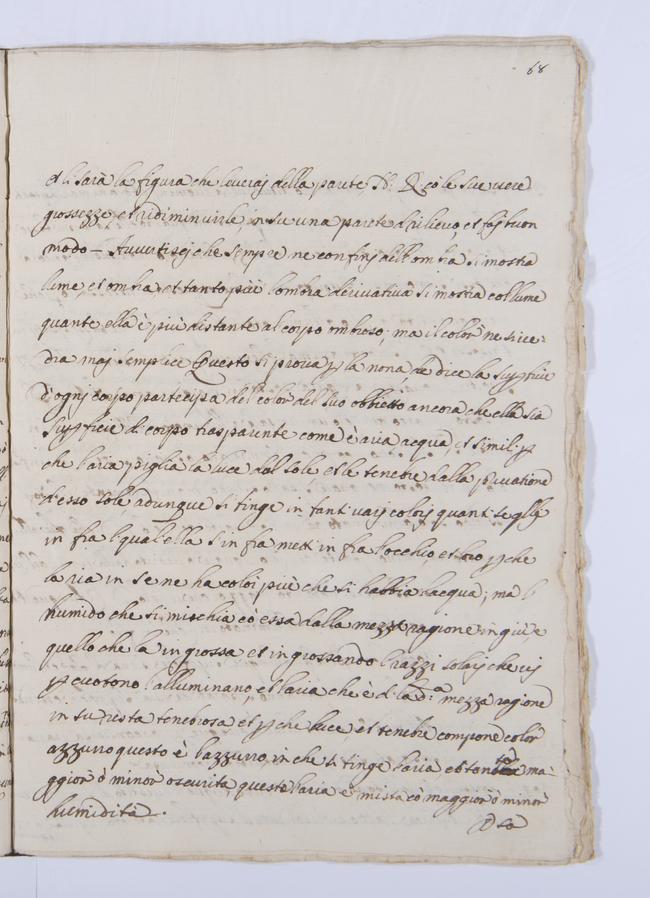 68
et li sarà la figura che leverai della parete, et co le sue vere
grossezze, et ridiminuirle, in su una parete di rilievo, et fa buon
modo — Avvertisci che sempre ne confinj dell'ombra si mostra
lume, et ombra, et tanto più l'ombra derivativa si mostra col lume
quante ella è più distante al corpo ombroso; ma il color ne si ve-
drà maj semplice Questo si prova p la nona, che dice la supficie
d'ognj corpo partecipa del color del suo obbietto ancora che ella sia
supficie di corpo trasparente come è aria acqua, et simili, p
che l'aria piglia la luce dal sole, et le tenebre dalla privatione
d'esso sole adunque si tinge in tant varij colorj quant se qllj
in fra l qual ella s in fra mett in fra l'occhio, et loro p che
la ria in se ne ha color più che si habbia l'acqua; ma l
humido che si mischia cò essa dalla mezza ragione in giù, e
quello che la ingrossa et ingrossando l razzi solarj che vj
pcuotono l'alluminano, et l'aria che è d. la dᵃ mezza ragione
in su resta tenebrosa et p che luce et tenebre compone color
azzurro questo è l'azzurro, in che si tinge l'aria còtanta ma-
ggior ò minor oscurità quest l'aria è mista cò maggior ò minor
humidità.